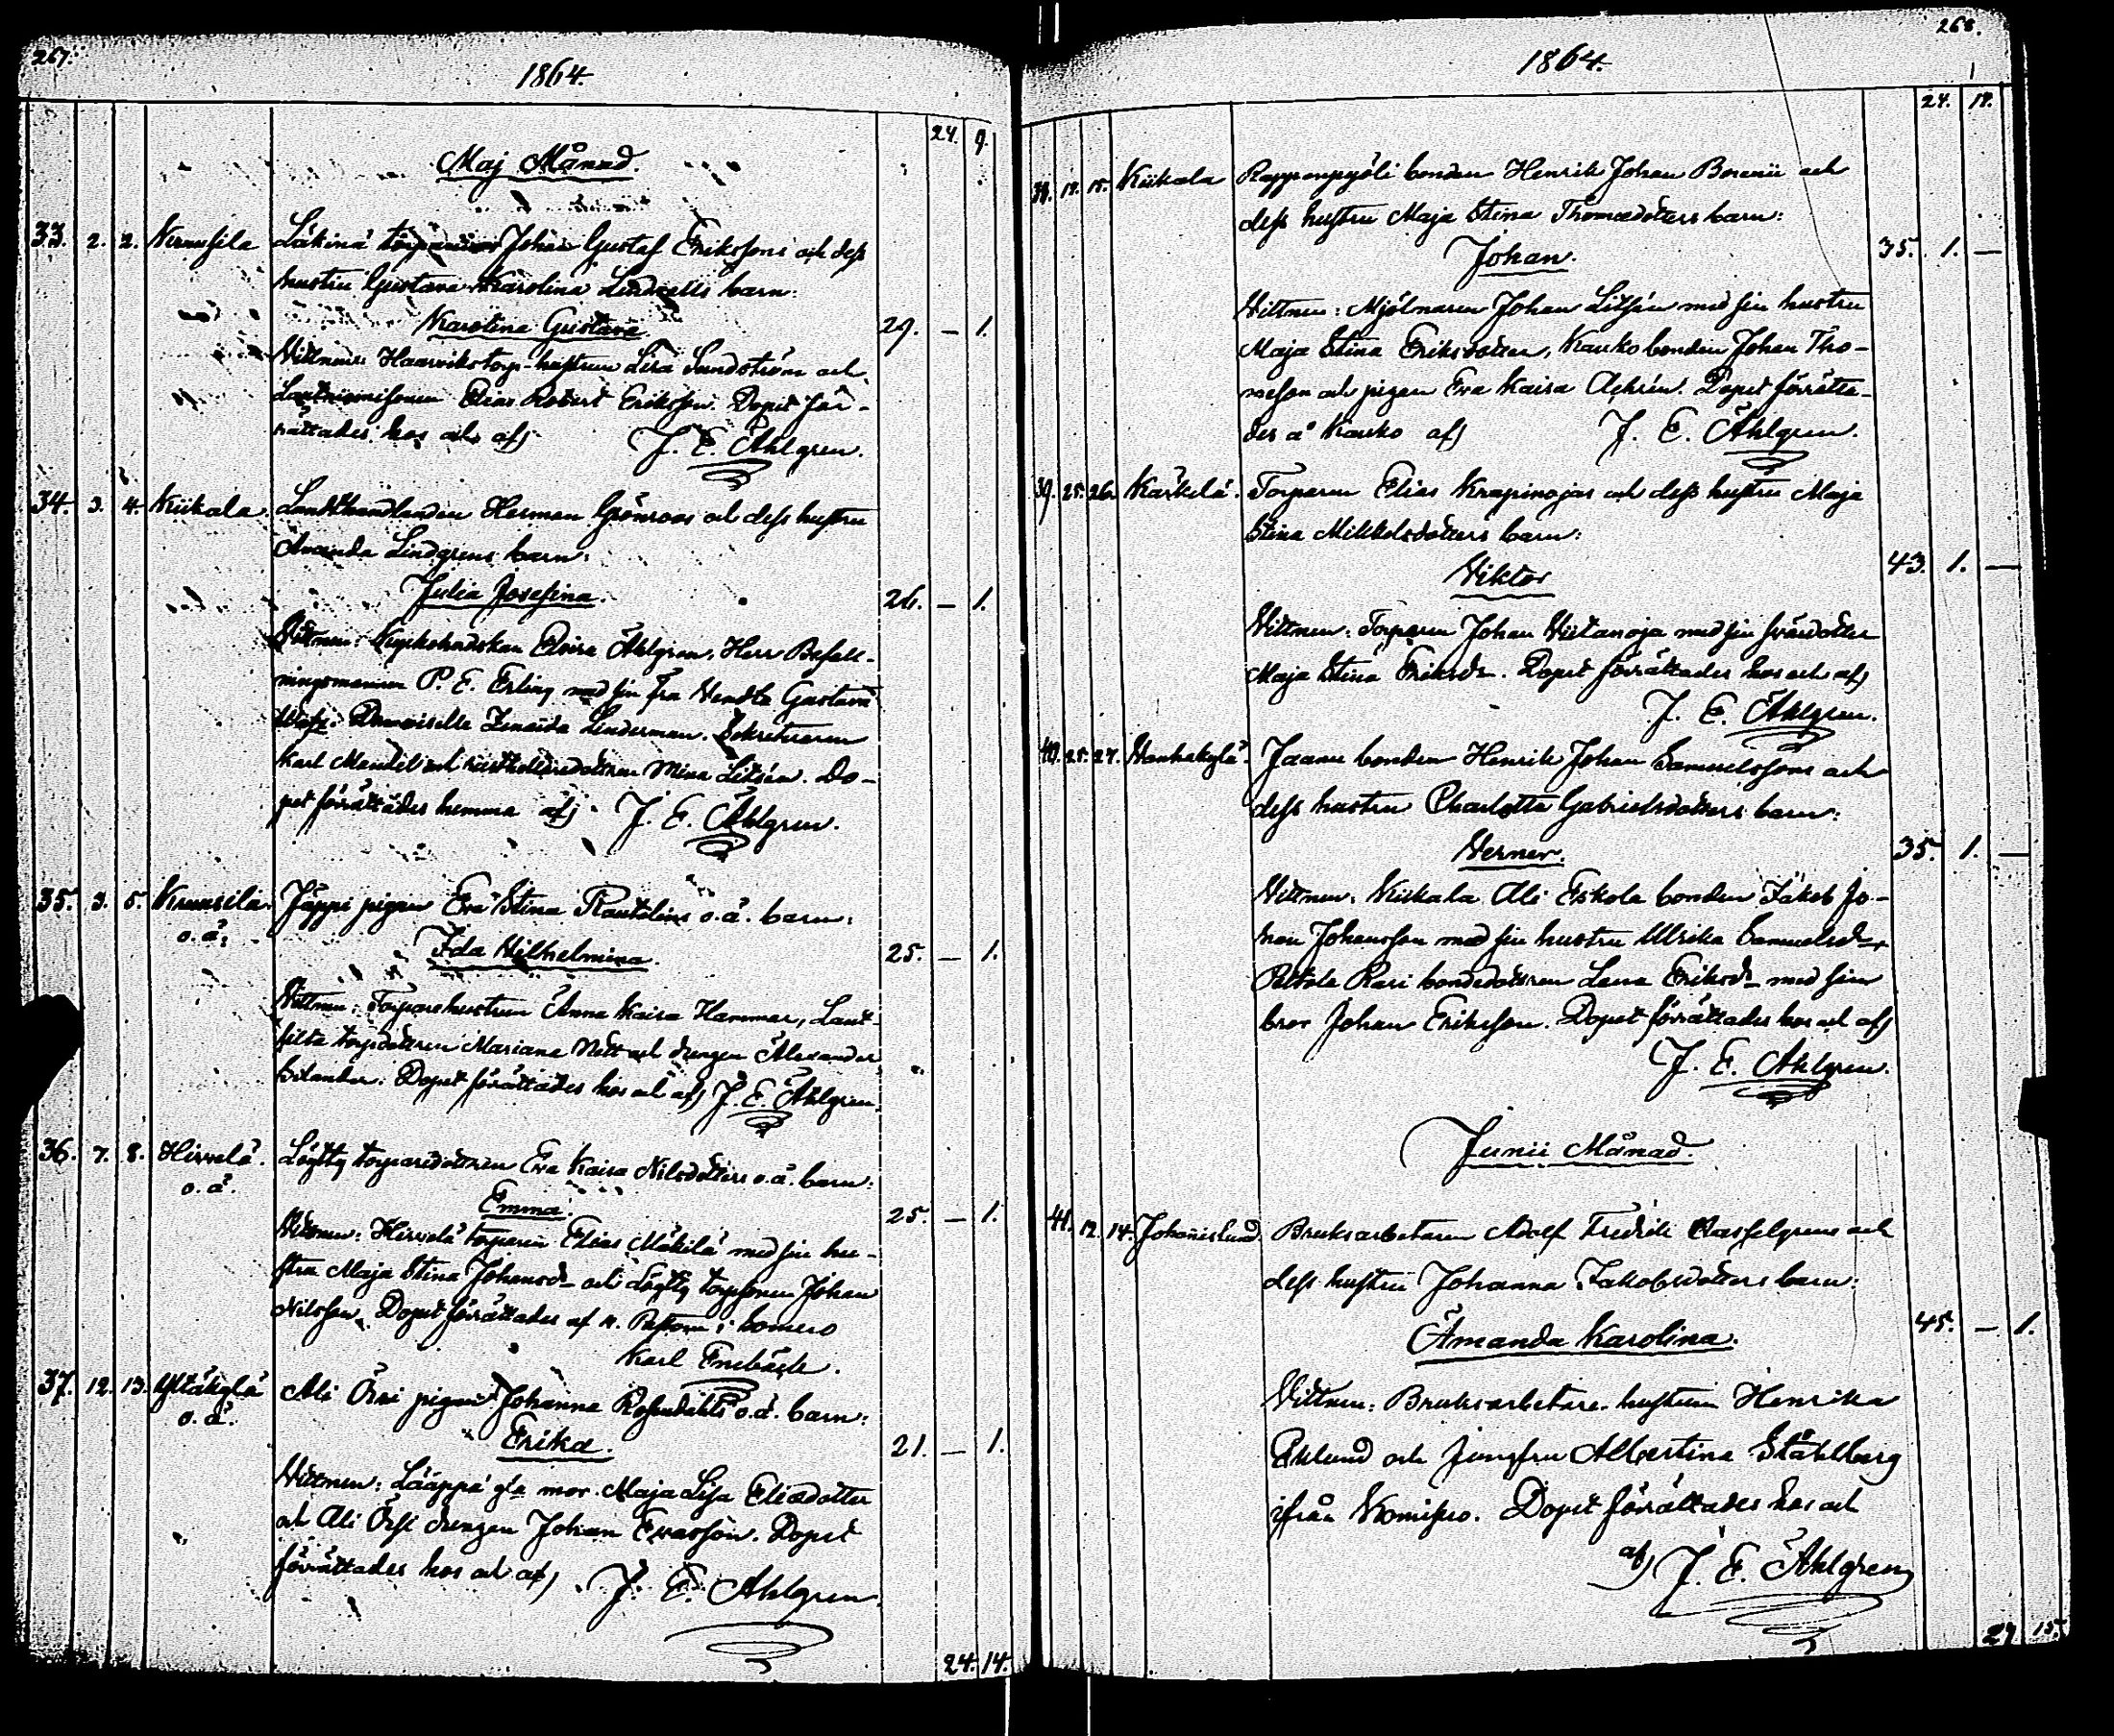 267.
1864.
24. 9.
Maj Månad.
33. 2. 2. Kruusila Läkinä torparen Johan Gustaf Erikssons och dess
hustru Gustava Karolina Lindvalls barn:
Karolina Gustava 29. — 1.
Vittnen: Haarviks torp-hustrun Lisa Sundström och
Elias Robert Eriksson. Dopet för-
rättades hos och af J. E. Ahlgren.
34. 3. 4. Kiikala Landthandlanden Herman Grönroos och dess hustru
Amanda Lindgrens barn:
Julia Josefina. 26. — 1.
Vittnen: Elvira Ahlgren, Herr Befall-
ningsmannen P. E. Erling med sin fru Hendla Gustava
Demoiselle Zenaida Linderman. Sekreteraren
Karl Mendel och rusthållaredottren Mina Litzén. Do-
pet förrättades hemma af J. E. Ahlgren.
35. 3. 5. Kruusila. Jäppi pigan Eva Stina Rautelins o.ä. barn:
o.ä.
Ida Vilhelmina. 25. — 1.
Vittnen: Torparehustrun Anna Kaisa Hammar, Laut-
silta torpdottren Mariana Nätt och drengen Alexander
Dopet förrättades hos och af J. E. Ahlgren.
36. 7. 8. Hirvelä. Löytty torparedottren Eva Kaisa Nilsdotters o.ä. barn:
o.ä.
Emma. 25. — 1.
Vittnen: Hirvelä torparen Elias Mäkilä med sin hu-
stru Maja Stina Johansd:r och Löytty torpsonen Johan
Nilsson. Dopet förrättades af v. Pastorn i Somero
Karl Enebäck.
37. 12. 13. Yltäkylä Ali Örsi pigan Johanna Rosendahls o.ä. barn:
o.ä.
Erika. 21. — 1.
Vittnen: Lääppä gla mor Maja Lisa Eliedotter
och Ali Örsi drengen Johan Evasson. Dopet
förrättades hos och af J. E. Ahlgren.
24. 14.
268.
1864.
24. 14.
38. 14. 15. Kiikala bonden Henrik Johan Borenii och
dess hustru Maja Stina Thomædotters barn:
Johan. 35. 1. —
Vittnen: Mjölnaren Johan Litzén med sin hustru
Maja Stina Eriksdotter, Kauko bonden Johan Tho-
masson och pigan Eva Kaisa Achrén. Dopet förrätta-
des å Kauko af J. E. Ahlgren.
39. 25. 26. Kärkelä. Torparen Elias Krapinojas och dess hustru Maja
Stina Mikkelsdotters barn:
Viktor 43. 1. —
Vittnen: Torparen Johan Viitanoja med sin svärdotter
Maja Stina Eriksd:r. Dopet förrättades hos och af
J. E. Ahlgren.
40. 25. 27. Vanhakylä. Jaanu bonden Henrik Johan Samuelssons och
dess hustru Charlotta Gabrielsdotters barn:
Verner. 35. 1. —
Vittnen: Kiikala Ali Eskola bonden Jakob Jo-
han Johansson med sin hustru Ulrika Samuelsd:r
Peltola Rasi bondedottren Lena Eriksd:r med sin
bror Johan Eriksson. Dopet förrättades hos och af
J. E. Ahlgren.
Junii Månad.
41. 12. 14. Johannislund. Bruksarbetaren Adolf Fredrik Hasselgrens och
dess hustru Johanna Jakobsdotters barn:
Amanda Karolina. 45. — 1.
Vittnen: Bruksarbetare-hustrun Henrika
Eklund och jungfru Albertina Ståhlberg
ifrån Kornisuo. Dopet förrättades hos och
af J. E. Ahlgren
27 15.